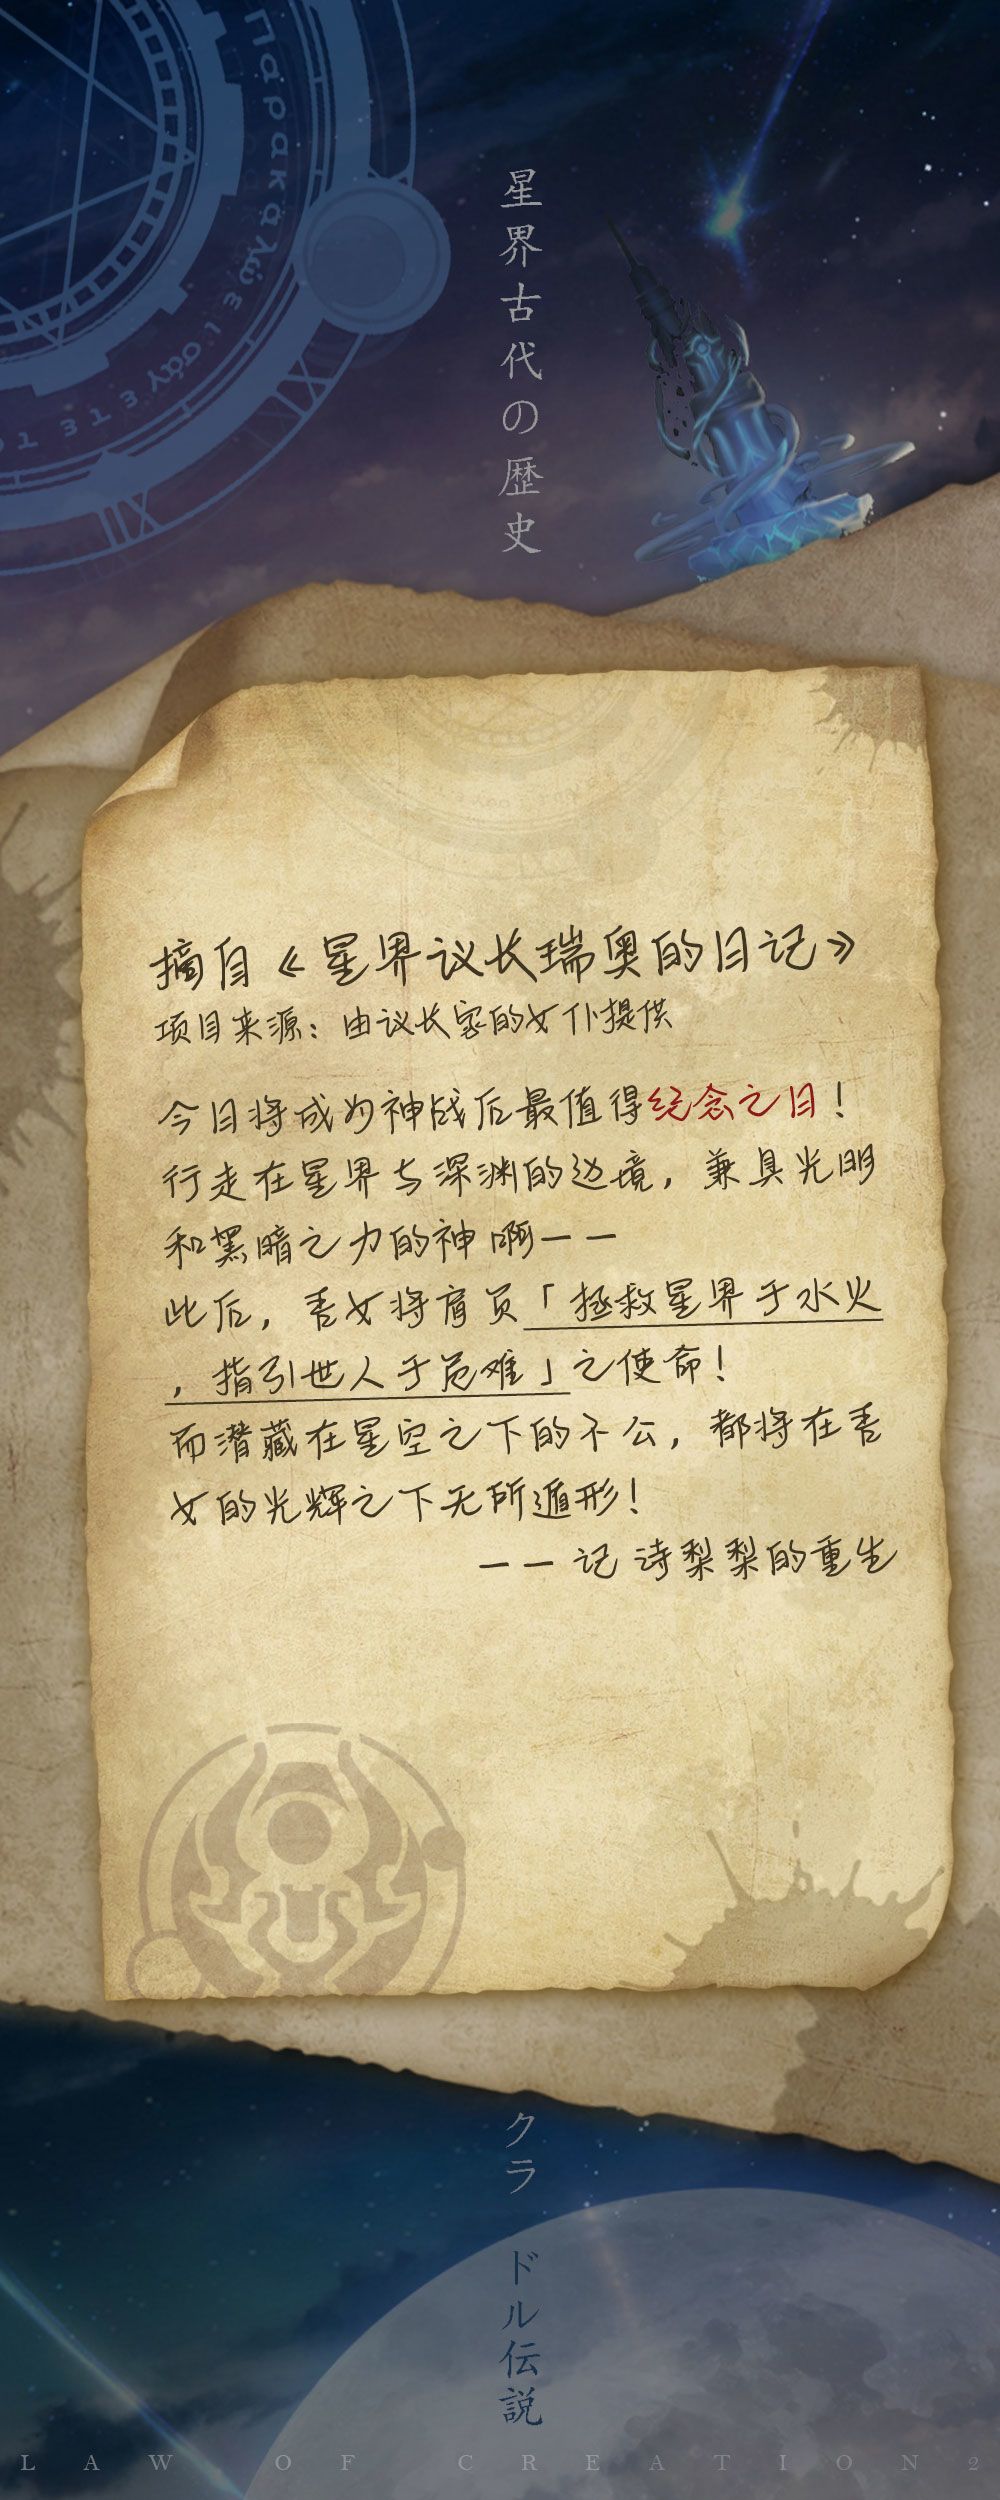 Παρακαλῶ εἰσάγετε το
星界古代の歴史
摘自《星界议长瑞奥的日记》
项目来源：由议长家的女仆提供
今日将成为神战后最值得纪念之日！
行走在星界与深渊的边境，兼具光明
和黑暗之力的神啊——
此后，吾女将肩负「拯救星界于水火
，指引世人于危难」之使命！
而潜藏在星空之下的不公，都将在吾
女的光辉之下无所遁形！
——记 诗梨梨的重生
クラ ドル伝説
LAW OF CREATION2